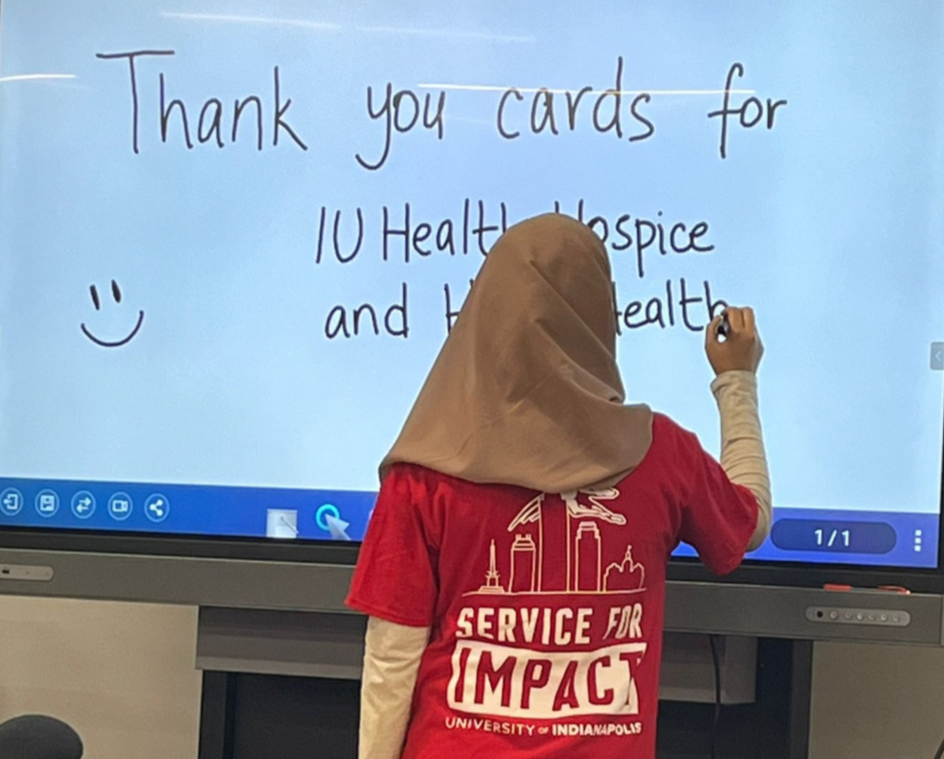 Thank you cards for
IU Health Hospice
and Health
1/1
SERVICE FOR
IMPACT
UNIVERSITY OF INDIANAPOLIS